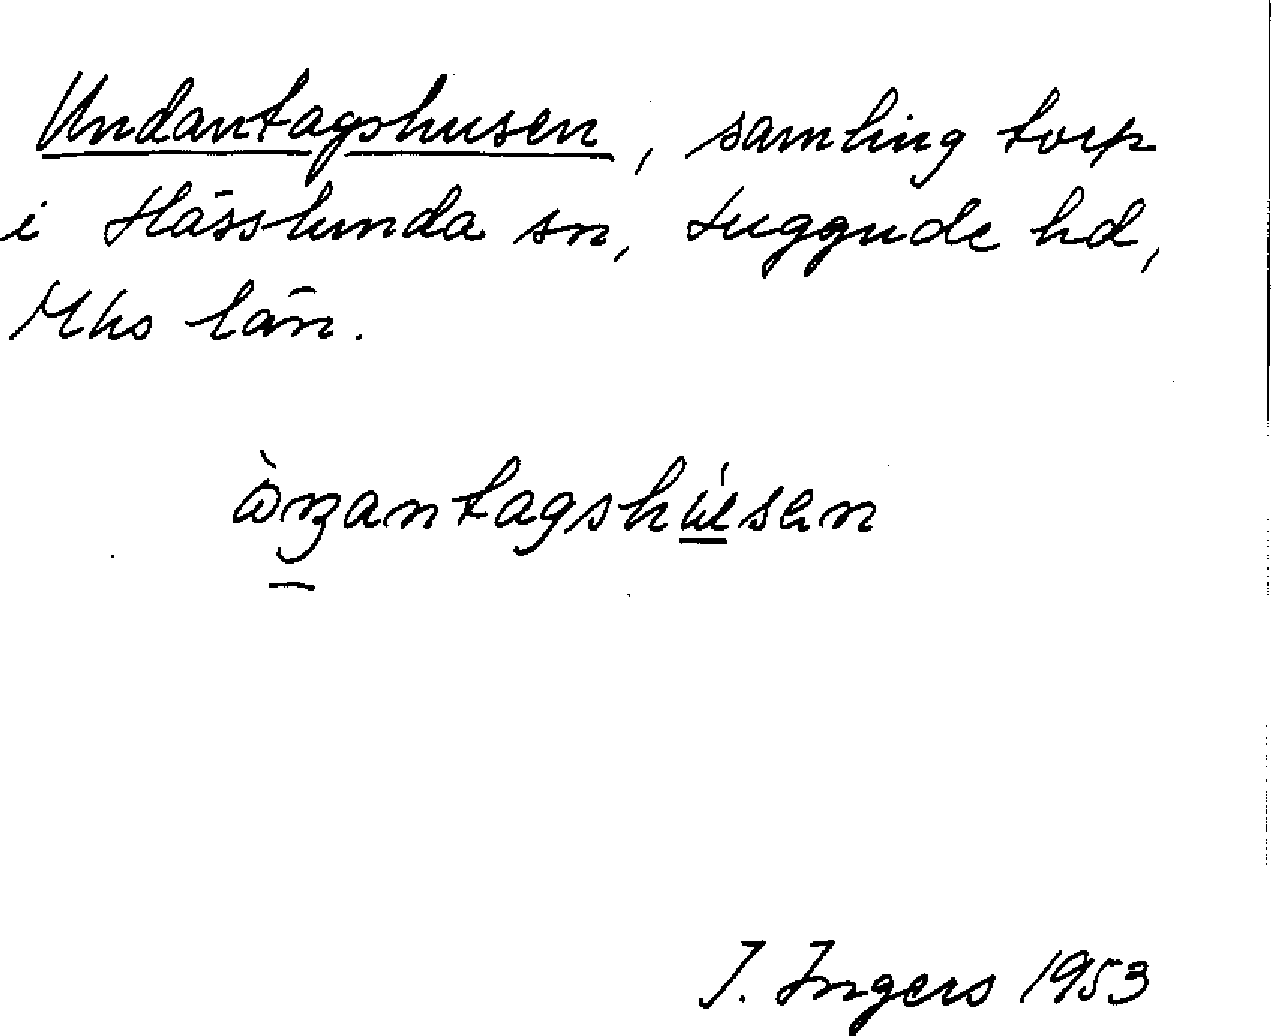 Undantagshusen, samling torp
i Hässlunda sn, Luggude hd,
Mhs län.
J. Ingers 1953